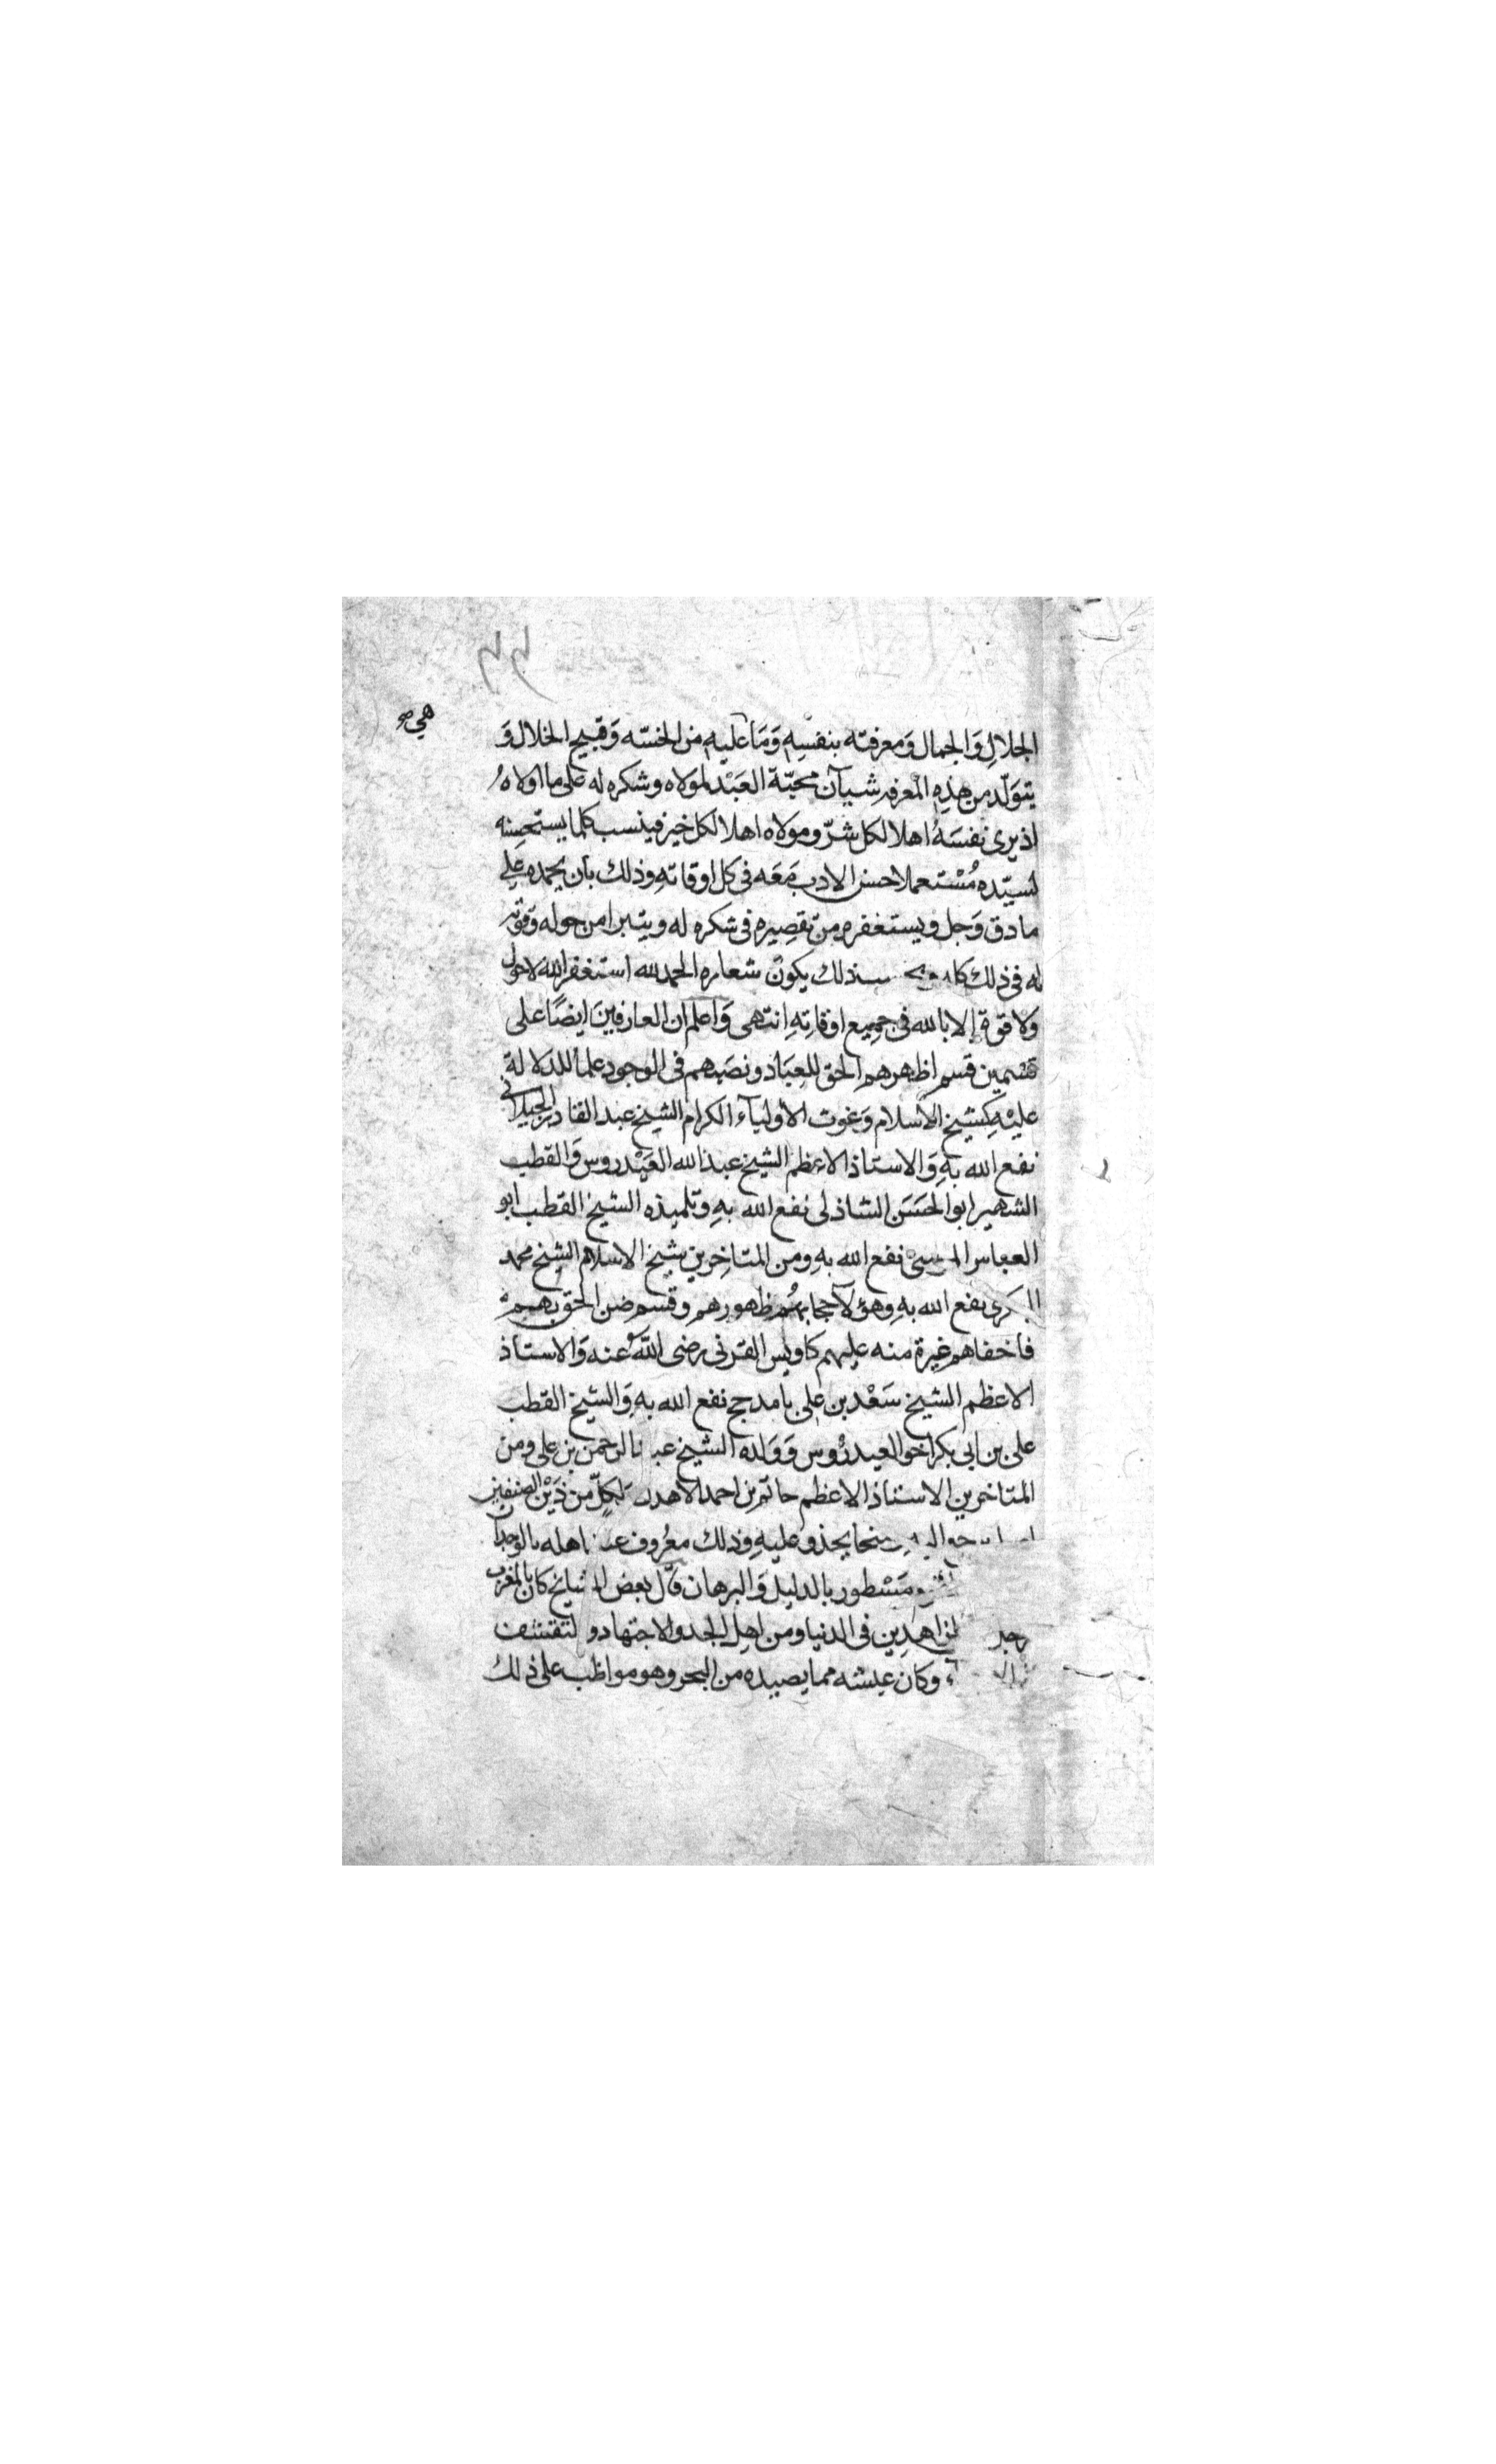 ٤٤
هي صح
الجلالِ وَالجمال وَمعرفته بنفسِهِ وَمَا عليهِ من الخسّه وَقبيح الخلال وَ
يتوَلّد من هذِهِ المعرفه شيآن محبّة العَبْد لمولاه وشكره له على ما اولاهُ
اذ يرى نفسَهُ اهلا لكل شرّ ومولاه اهلا لكل خير فينسب كلما يستحسِنه
لسيّده مُسْتعملا حسن الادب مَعَه فى كل اوقاتهِ وذلك بان يحمده على
ما دق وَجل ويستغفره من تقصِيره فى شكره له ويتبرا من حوله وَقوته
له فى ذلك يكون شعاره الحمد لله استغفر الله لا حول
ولا قوة إلا بالله فى جميع اوقاتِهِ انتهى وَاعلم ان العارفينَ ايضًا على
قسْمين قسم اظهرهم الحق للعِبَاد ونصَبهم فى الوجود علماً للدلالة
عليْهِ كشيخ الاسلام وَغوث الاوليآء الكرام الشيخ عبد القادر الجيلانى
نفع الله بهِ وَالاستاذ الاعظم الشيخ عبد الله العَيْدروس وَالقطب
الشهير ابو الحَسَن الشاذلى نفع الله بهِ وتلميذه الشيخ القطب ابو
العباس المرسىْ نفع الله بهِ ومن المتاخِرين شيخ الاسلام الشيخ محمد
البكرى نفع الله بهِ وهؤلآ حجابهُم ظهورهم وقسم ضن الحق بهمْ
فاخفاهم غيرة منه عليهم كاويس القرنى رضى اللّهُ عنه وَالاستاذ
الاعظم الشيخ سَعْد بن على بامدحج نفع الله بهِ وَالشيخ القطب
على بن ابى بكر اخو العيدرُوس وَوَلده الشيخ عبد الرحمن بن على ومن
المتاخرين الاستاذ الاعظم حاتم بن احمد الاهدل وَلكلّ من ذَيْن الصنفين
منحا يحذو عليهِ وذلك معرُوف عند اهله بالوجدان
ومَسْطور بالدليل وَالبرهان قال بعض المشايخ كان بالمغرب
رجل من الزاهدِين فى الدنيا ومن اهل الجد والاجتهاد والتقشف
وكان عيشه مما يصيده من البحر وهو مواظب على ذلك